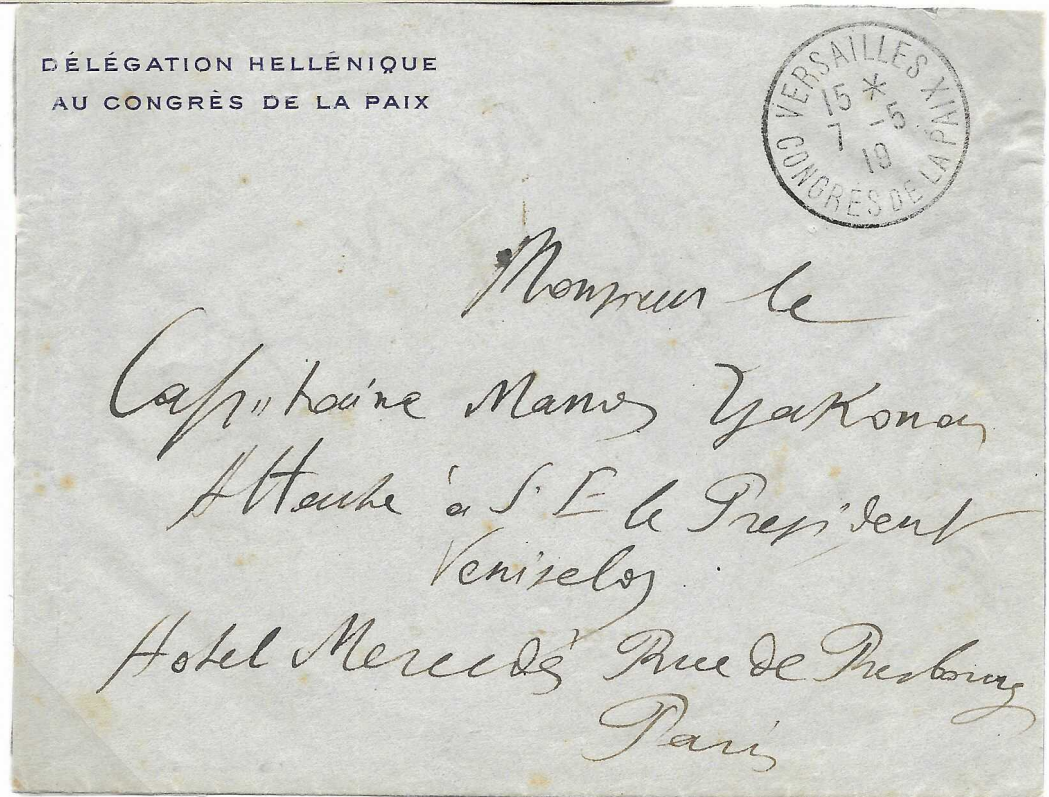 DÉLÉGATION HELLÉNIQUE
AU CONGRÈS DE LA PAIX
VERSAILLES CONGRÈS DE LA PAIX
15 * 7 - 5 19
Monsieur le
Capitaine Manos
Attaché à S. E le President
Veniselos
Hotel Mercedès Rue de Presbourg
Paris